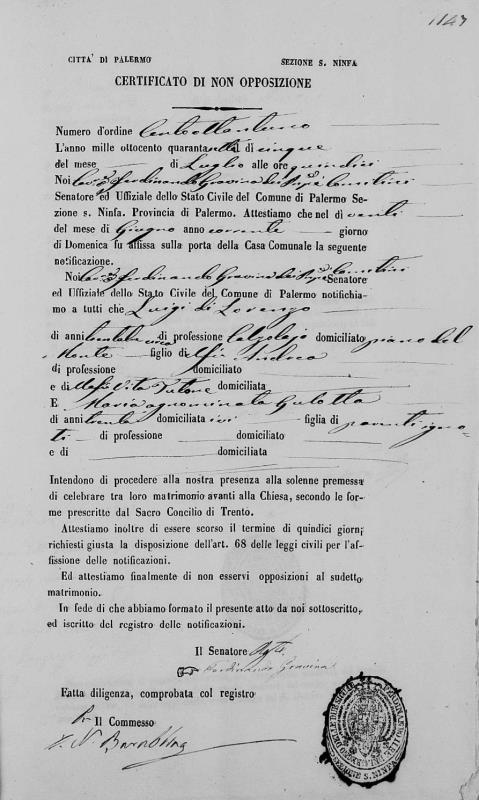 1147
CITTA' DI PALERMO
SEZIONE S. NINFA
CERTIFICATO DI NON OPPOSIZIONE
Numero d'ordine
L'anno mille ottocento quarantotto il di cinque
del mese di Luglio alle ore quindici
Noi Ferdinando Gravina dei
Senatore ed Uffiziale dello Stato Civile del Comune di Palermo Se-
zione s. Ninfa. Provincia di Palermo. Attestiamo che nel dì venti
del mese di Giugno anno corrente giorno
di Domenica fu affissa sulla porta della Casa Comunale la seguente
notificazione.
Noi Ferdinando Gravina dei Senatore
ed Uffiziale dello Stato Civile del Comune di Palermo notifichia-
mo a tutti che Luigi di Lorenzo
di anni di professione Calzolajo domiciliato piano del
Monte figlio di Andrea
di professione domiciliato
e di Vita domiciliata
E Maria Gulotta
di anni trenta domiciliata ivi figlia di parenti igno=
ti di professione domiciliato
e di domiciliata
Intendono di procedere alla nostra presenza alla solenne premessa
di celebrare tra loro matrimonio avanti alla Chiesa, secondo le for-
me prescritte dal Sacro Concilio di Trento.
Attestiamo inoltre di essere scorso il termine di quindici giorni
richiesti giusta la disposizione dell'art. 68 delle leggi civili per l'af-
fissione delle notificazioni.
Ed attestiamo finalmente di non esservi opposizioni al sudetto
matrimonio.
In fede di che abbiamo formato il presente atto da noi sottoscritto,
ed iscritto del registro delle notificazioni.
Il Senatore
Ferdinando Gravina
Fatta diligenza, comprobata col registro
Il Commesso